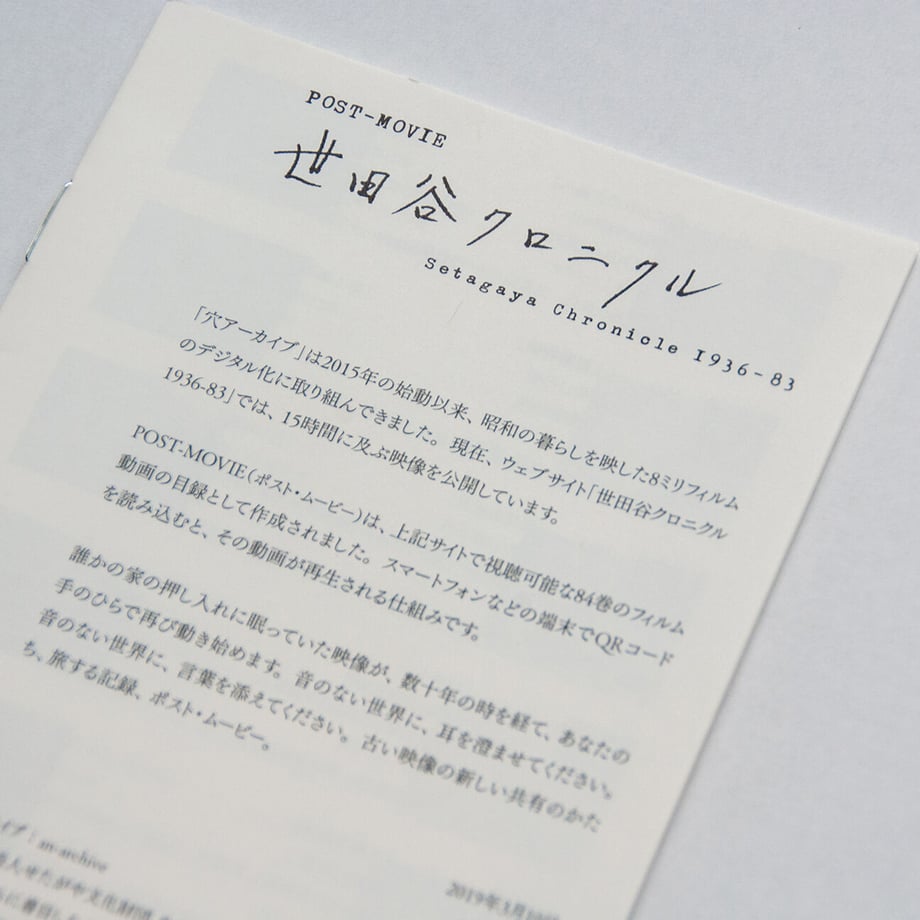 POST-MOVIE
世田谷クロニクル
Setagaya Chronicle 1936-83
「穴アーカイブ」は2015年の始動以来、昭和の暮らしを映した8ミリフィルム
のデジタル化に取り組んできました。現在、ウェブサイト「世田谷クロニクル
1936-83」では、15時間に及ぶ映像を公開しています。
POST-MOVIE(ポスト・ムービー)は、上記サイトで視聴可能な84巻のフィルム
動画の目録として作成されました。スマートフォンなどの端末でQRコード
を読み込むと、その動画が再生される仕組みです。
誰かの家の押し入れに眠っていた映像が、数十年の時を経て、あなたの
手のひらで再び動き始めます。音のない世界に、耳を澄ませてください。
音のない世界に、言葉を添えてください。古い映像の新しい共有のかた
ち、旅する記録、ポスト・ムービー。
イブ:an-archive
人せたがや文化財団
2019年3月10日